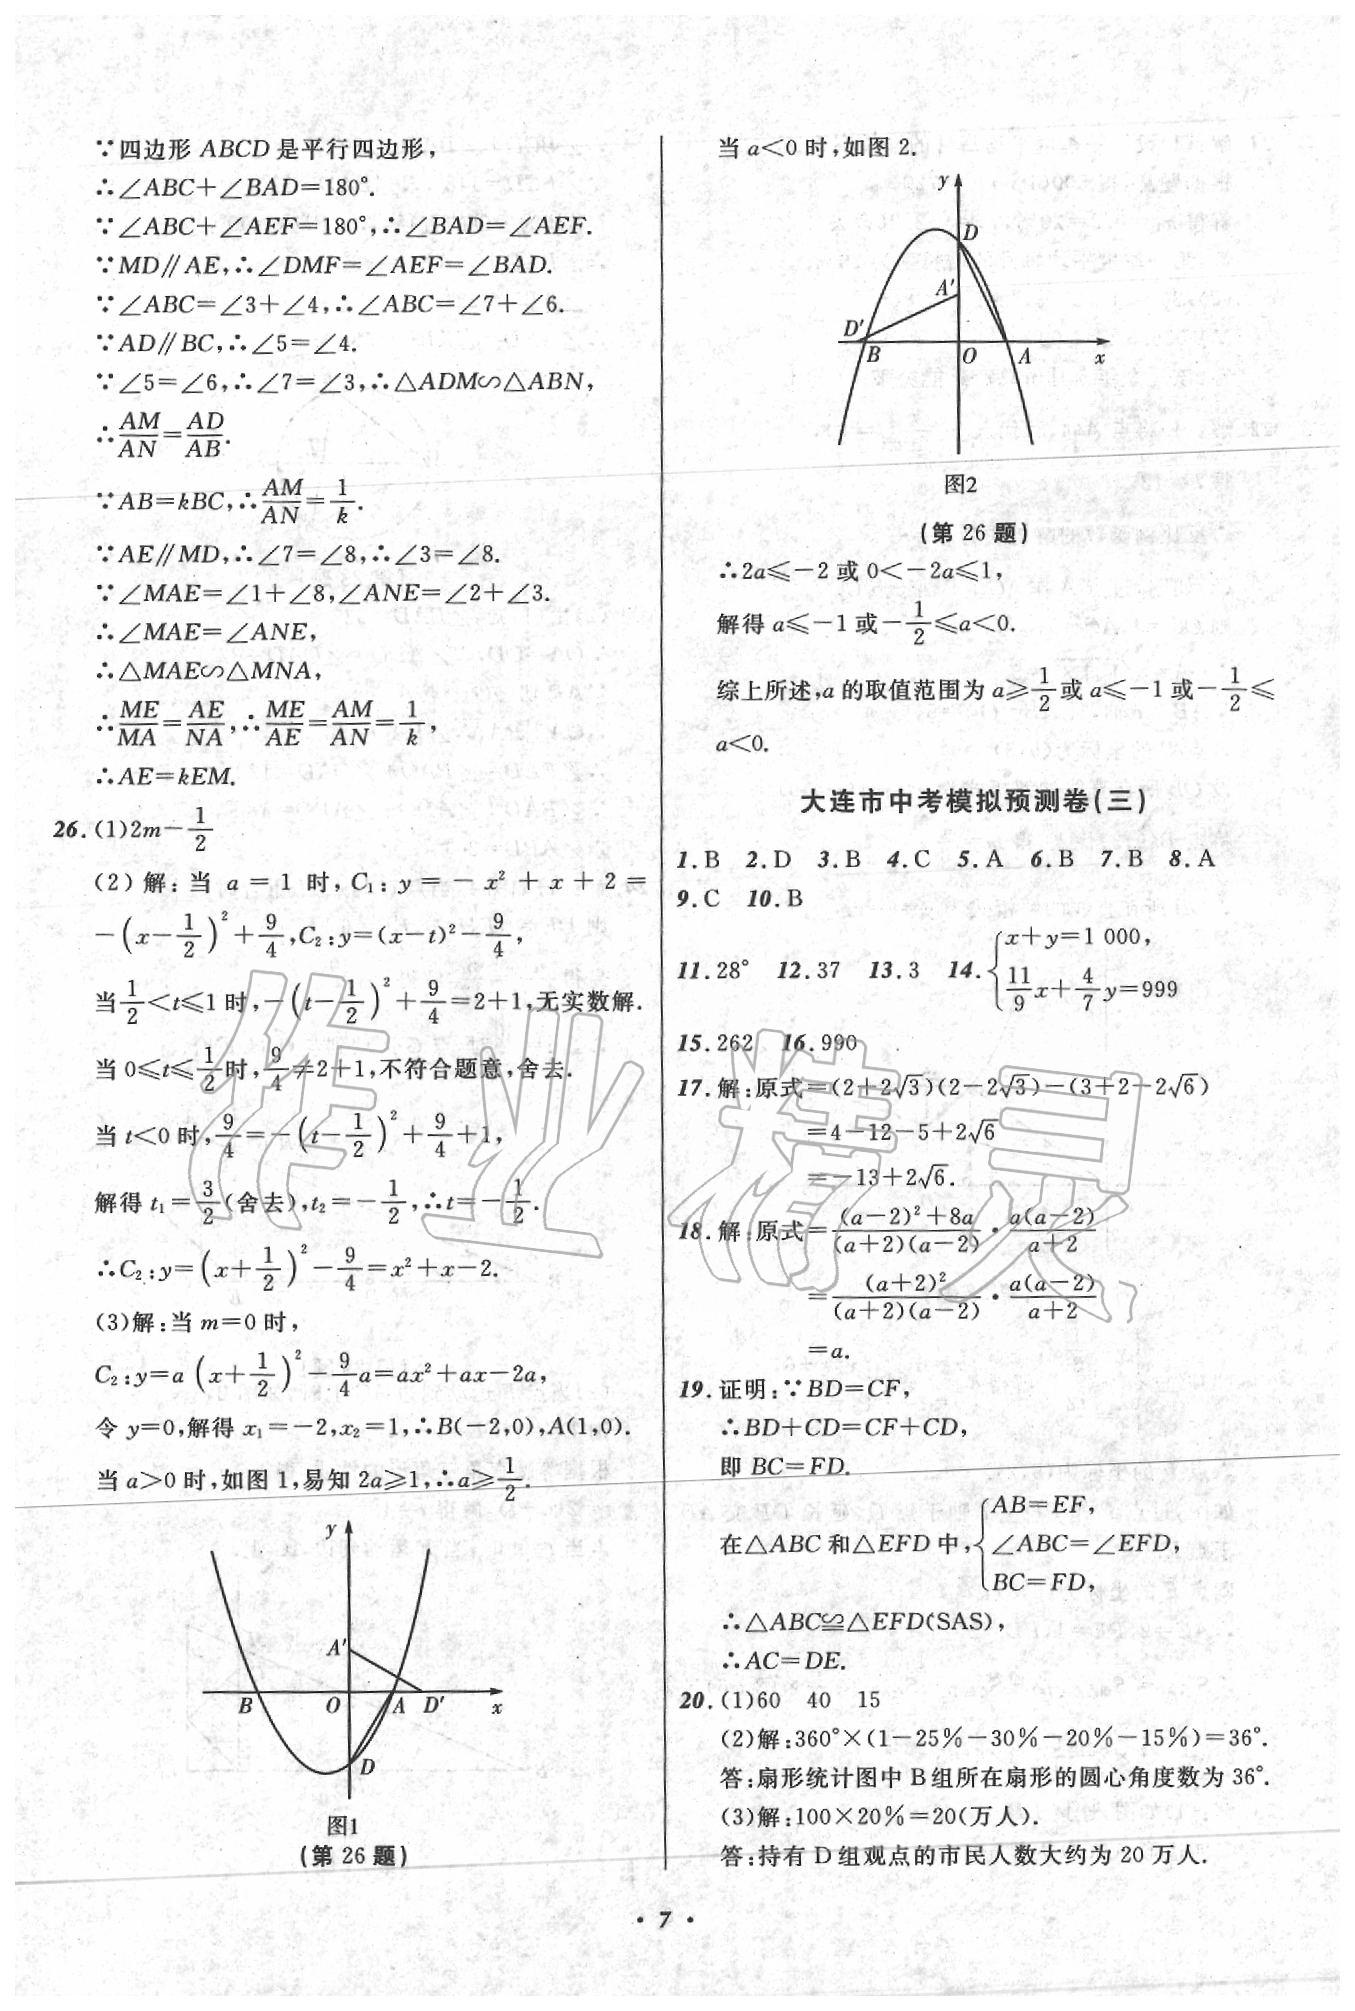 ∵四边形 ABCD 是平行四边形，
∴∠ABC＋∠BAD＝180°.
∵∠ABC＋∠AEF＝180°，∴∠BAD＝∠AEF.
∵MD∥AE，∴∠DMF＝∠AEF＝∠BAD.
∵∠ABC＝∠3＋∠4，∴∠ABC＝∠7＋∠6.
∵AD∥BC，∴∠5＝∠4.
∵∠5＝∠6，∴∠7＝∠3，∴△ADM∽△ABN，
∴AM/AN＝AD/AB.
∵AB＝kBC，∴AM/AN＝1/k.
∵AE∥MD，∴∠7＝∠8，∴∠3＝∠8.
∵∠MAE＝∠1＋∠8，∠ANE＝∠2＋∠3.
∴∠MAE＝∠ANE，
∴△MAE∽△MNA，
∴ME/MA＝AE/NA，∴ME/AE＝AM/AN＝1/k，
∴AE＝kEM.
26.(1)2m－1/2
(2)解：当 a＝1 时，C₁：y＝－x²＋x＋2＝
－(x－1/2)²＋9/4，C₂：y＝(x－t)²－9/4，
当1/2＜t≤1时，－(t－1/2)²＋9/4＝2＋1，无实数解.
当0≤t≤1/2时，9/4≠2＋1，不符合题意，舍去.
当t＜0时，9/4＝－(t－1/2)²＋9/4＋1，
解得 t₁＝3/2(舍去)，t₂＝－1/2，∴t＝－1/2.
∴C₂：y＝(x＋1/2)²－9/4＝x²＋x－2.
(3)解：当 m＝0 时，
C₂：y＝a(x＋1/2)²－9/4a＝ax²＋ax－2a，
令 y＝0，解得 x₁＝－2，x₂＝1，∴B(－2，0)，A(1，0).
当a＞0时，如图1，易知2a≥1，∴a≥1/2.
y
A′
B O A D′ x
D
图1
(第 26 题)
当 a＜0 时，如图 2.
y
D
A′
D′
B O A x
图2
(第 26 题)
∴2a≤－2 或 0＜－2a≤1，
解得 a≤－1 或－1/2≤a＜0.
综上所述，a 的取值范围为 a≥1/2或 a≤－1 或－1/2≤
a＜0.
大连市中考模拟预测卷(三)
1.B 2.D 3.B 4.C 5.A 6.B 7.B 8.A
9.C 10.B
11.28° 12.37 13.3 14.{x＋y＝1 000，
11/9x＋4/7y＝999
15.262 16.990
17.解：原式＝(2＋2√3)(2－2√3)－(3＋2－2√6)
＝4－12－5＋2√6
＝－13＋2√6.
18.解：原式＝((a－2)²＋8a)/((a＋2)(a－2))·a(a－2)/(a＋2)
＝(a＋2)²/((a＋2)(a－2))·a(a－2)/(a＋2)
＝a.
19.证明：∵BD＝CF，
∴BD＋CD＝CF＋CD，
即 BC＝FD.
在△ABC 和△EFD 中，{AB＝EF，
∠ABC＝∠EFD，
BC＝FD，
∴△ABC≌△EFD(SAS)，
∴AC＝DE.
20.(1)60 40 15
(2)解：360°×(1－25％－30％－20％－15％)＝36°.
答：扇形统计图中 B组所在扇形的圆心角度数为 36°.
(3)解：100×20％＝20(万人).
答：持有 D 组观点的市民人数大约为 20 万人.
作业精灵
· 7 ·